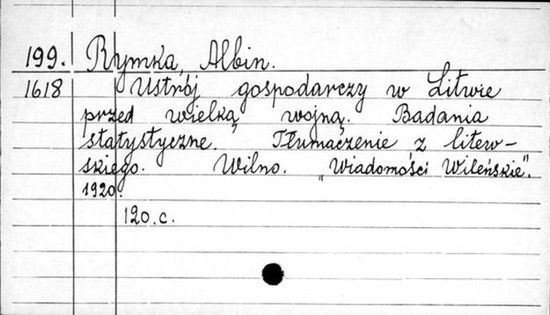 199. Rymka, Albin.
1618 Ustrój gospodarczy w Litwie
przed wielką wojną. Badania
statystyczne." Tłumaczenie z litew-
skiego. Wilno. „Wiadomości Wileńskie".
1920.
120.c.